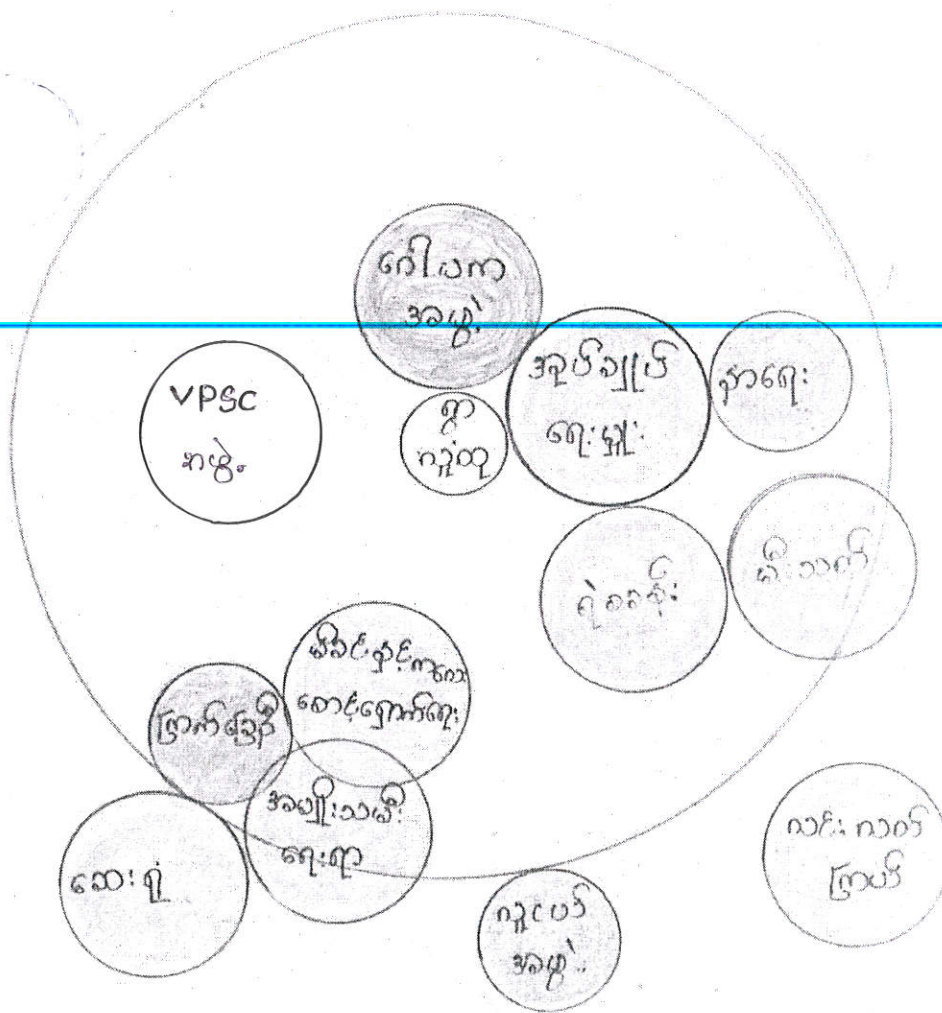 ဂေါပက
အဖွဲ့
VPSC
အဖွဲ့
ရွာ
လူထု
အုပ်ချုပ်
ရေးမှူး
စာရေး
ရဲစခန်း
မီးသတ်
မိခင်နှင့်ကလေး
စောင့်ရှောက်ရေး
ကြက်ခြေနီ
အမျိုးသမီး
ရေးရာ
ဆေးရုံ
လူငယ်
အဖွဲ့
လင်းလတ်
ကြယ်